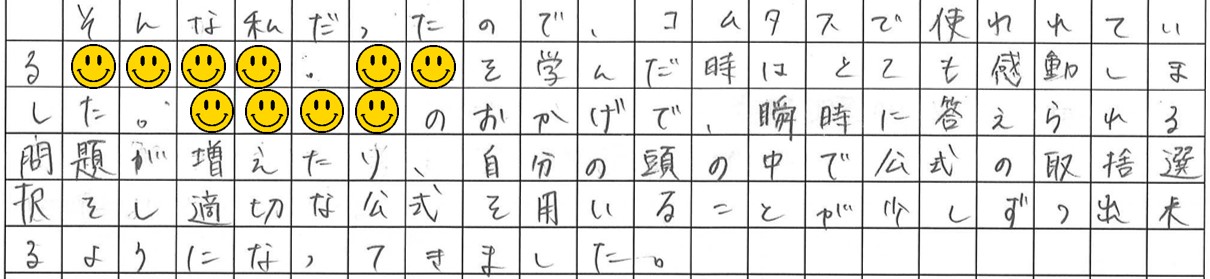 そんな私だったので、コムタスで使れれてい
る 。 を学んだ時はとても感動しま
した。 のおかげで、瞬時に答えられる
問題が増えたり、自分の頭の中で公式の取捨選
択をし適切な公式を用いることが少しずつ出来
るようになってきました。